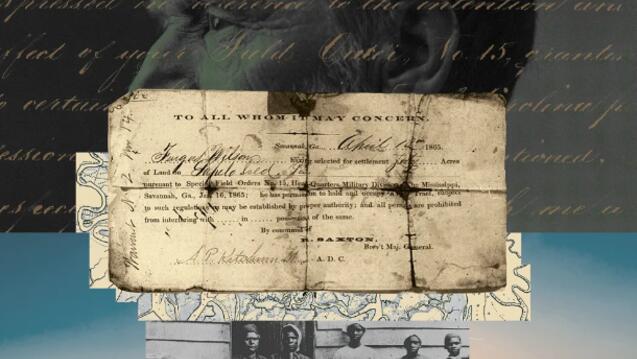 expressed in reference to the intention and
effect of your Field Order, No. 15, grantes
certain
ession mentioned
TO ALL WHOM IT MAY CONCERN.
Savannah, Ga., April 1865.
Fergus Wilson having selected for settlement four Acres
of Land on Sapelo Island, Ga.
pursuant to Special Field Orders No. 15, Head-Quarters Military Division Mississippi,
Savannah, Ga., Jan. 16, 1865; he has permission to hold and occupy subject
to such regulations as may be established by proper authority; and all persons are prohibited
from interfering with in possession of the same.
By command of
R. SAXTON,
Brev't Maj. General.
A. P. Ketchum
A. D. C.